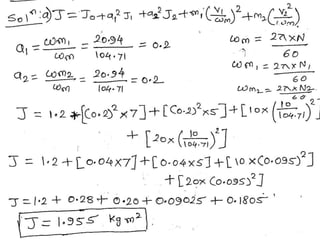 Solⁿ: a) J = J₀ + a₁² J₁ + a₂² J₂ + m₁ (V₁/ωm)² + m₂ (V₂/ωm)²
a₁ = ωm₁/ωm = 20.94/104.71 = 0.2
ωm = 2π×N/60
ωm₁ = 2π×N₁/60
a₂ = ωm₂/ωm = 20.96/104.71 = 0.2
ωm₂ = 2π×N₂/60
J = 1.2 + [(0.2)² × 7] + [(0.2)² × 5] + [10 × (10/104.71)²]
+ [20 × (10/104.71)²]
J = 1.2 + [0.04×7] + [0.04×5] + [10×(0.095)²]
+ [20× (0.095)²]
J = 1.2 + 0.28 + 0.20 + 0.09025 + 0.1805
J = 1.955 kg m²